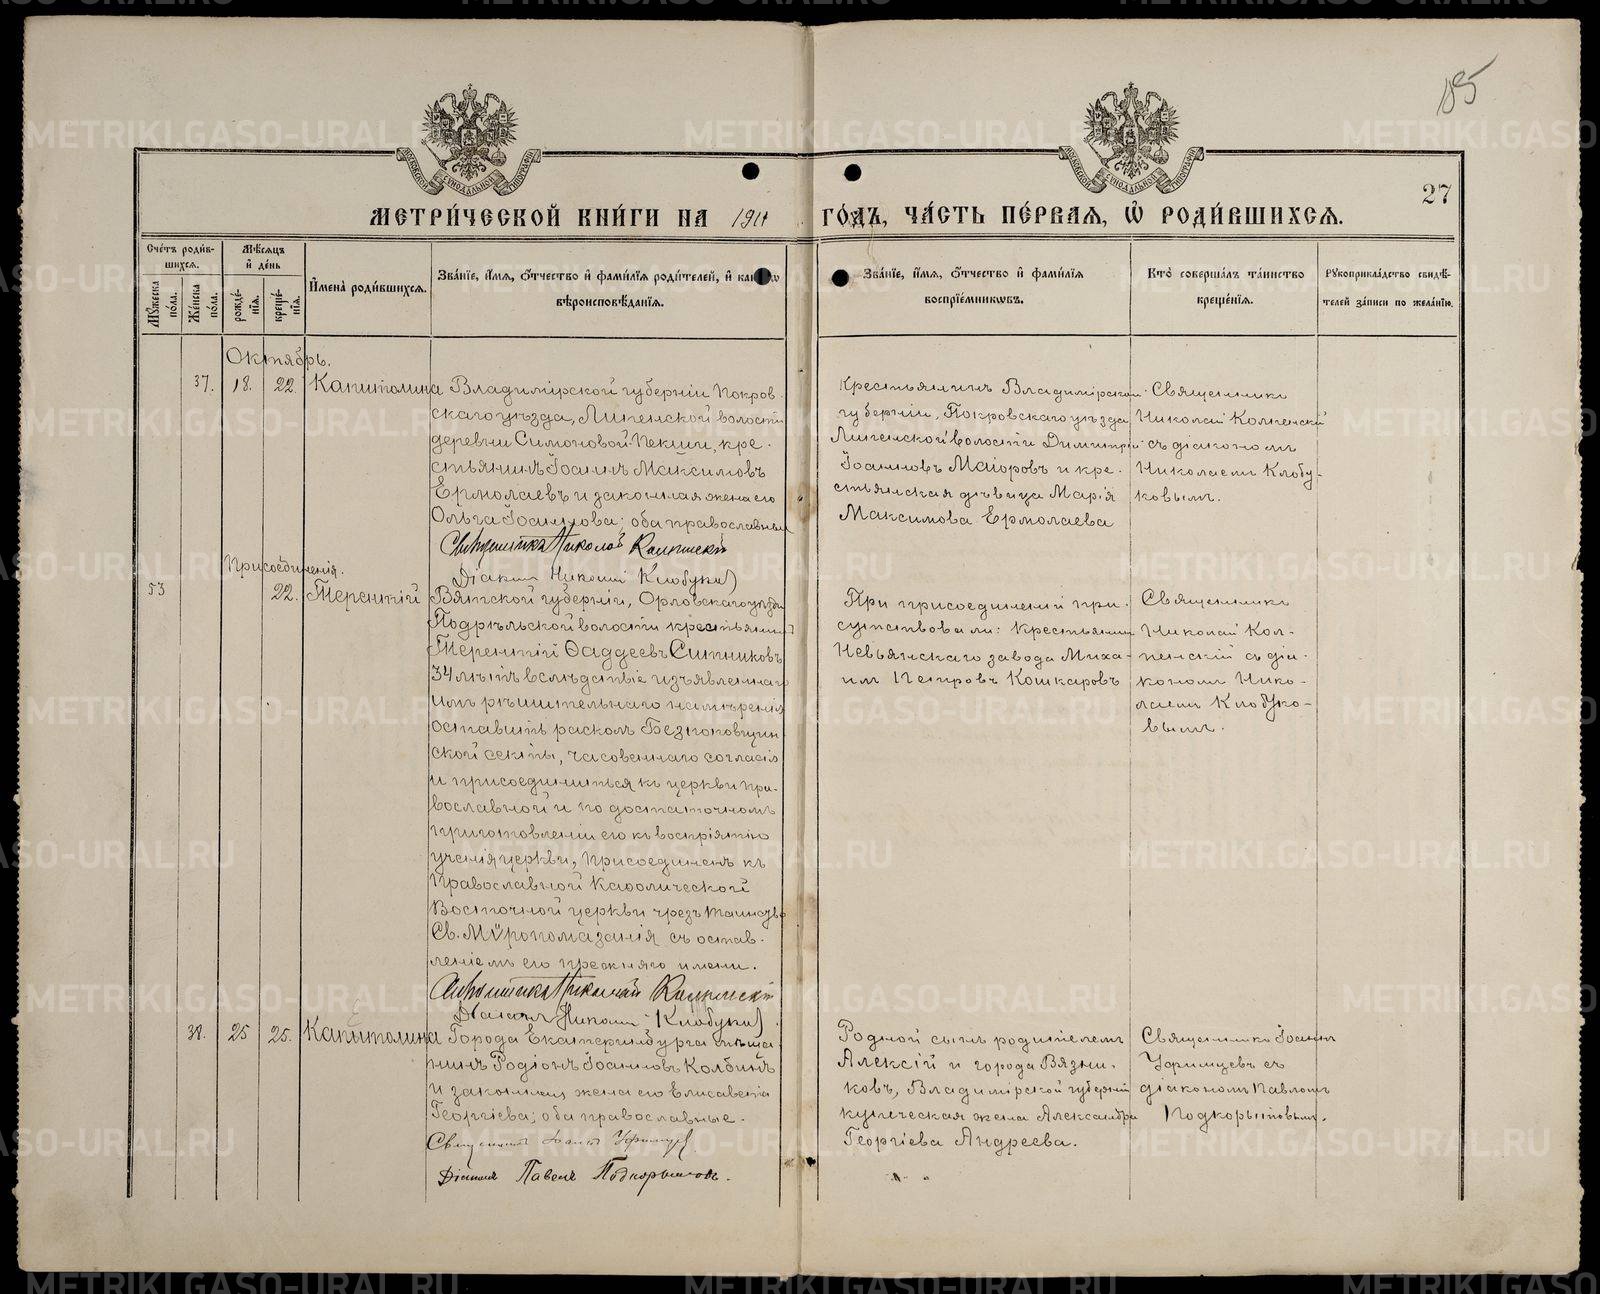 185
27
МОСКОВСКОЙ СѴНОДАЛЬНОЙ ТИПОГРАФІИ
МОСКОВСКОЙ СѴНОДАЛЬНОЙ ТИПОГРАФІИ
МЕТРИ́ЧЕСКОЙ КНИ́ГИ НА 1911 ГО́ДЪ, ЧА́СТЬ ПЕ́РВАЯ, Ѡ҆ РОДИ́ВШИХСЯ.
Сче́тъ роди́в-
шихся.
Мꙋ́жеска по́ла.
Же́нска по́ла.
Мѣ́сяцъ
и҆ де́нь
рожде́-
нїя.
креще́-
нїя.
И҆мена̀ роди́вшихся.
Зва́нїе, и҆́мя, ѻ҆́тчество и҆ фами́лїя роди́телей, и҆
вѣроисповѣ́данїя.
Зва́нїе, и҆́мя, ѻ҆́тчество и҆ фами́лїя
воспрїе́мникѡвъ.
Кто̀ соверша́лъ та́инство
креще́нїя.
Рꙋкоприкла́дство свидѣ́-
телей за́писи по жела́нїю.
Октябрь.
37. 18. 22. Капитолина
Владимірской губерніи Покров-
скаго уѣзда, Липенской волости
деревни Симоновой-Пекши, кре-
стьянинъ Іоаннъ Максимовъ
Ермолаевъ и законная жена его
Ольга Іоаннова; оба православные
Священникъ Николай Колпенскій
Діаконъ Николай Клобуковъ
Крестьянинъ Владимірской
губерніи, Покровскаго уѣзда
Липенской волости Димитрій
Іоанновъ Маіоровъ и кре-
стьянская дѣвица Марія
Максимова Ермолаева
Священникъ
Николай Колпенскій
съ діакономъ
Николаемъ Клобу-
ковымъ.
Присоединенія.
53 22. Терентій
Вятской губерніи, Орловскаго уѣзда
Подрѣльской волости крестьянинъ
Терентій Ѳаддеевъ Ситниковъ
34 лѣтъ вслѣдствіе изъявленнаго
имъ рѣшительнаго намѣренія
оставить расколъ Безпоповщин-
ской секты, часовеннаго согласія
и присоединиться къ церкви Пра-
вославной и по достаточномъ
приготовленіи его къ воспріятію
ученія церкви, присоединенъ къ
Православной Каѳолической
Восточной церкви чрезъ таинство
Св. Мѵропомазанія съ остав-
леніемъ его прежняго имени.
Священникъ Николай Колпенскій
Діаконъ Николай Клобуковъ
При присоединеніи при-
сутствовали: крестьянинъ
Невьянскаго завода Миха-
илъ Петровъ Кошкаровъ
Священникъ
Николай Кол-
пенскій съ діа-
кономъ Нико-
лаемъ Клобуко-
вымъ.
38. 25 25. Капитолина
Города Екатеринбурга мѣща-
нинъ Родіонъ Іоанновъ Колбинъ
и законная жена его Елисавета
Георгіева; оба православные.
Священникъ Іоаннъ Уфимцевъ
Діаконъ Павелъ Подкорытовъ.
Родной сынъ родителемъ
Алексій и города Вязни-
ковъ, Владимірской губерніи
купеческая жена Александра
Георгіева Андреева.
Священникъ Іоаннъ
Уфимцевъ съ
діакономъ Павломъ
Подкорытовымъ.
METRIKI.GASO-URAL.RU